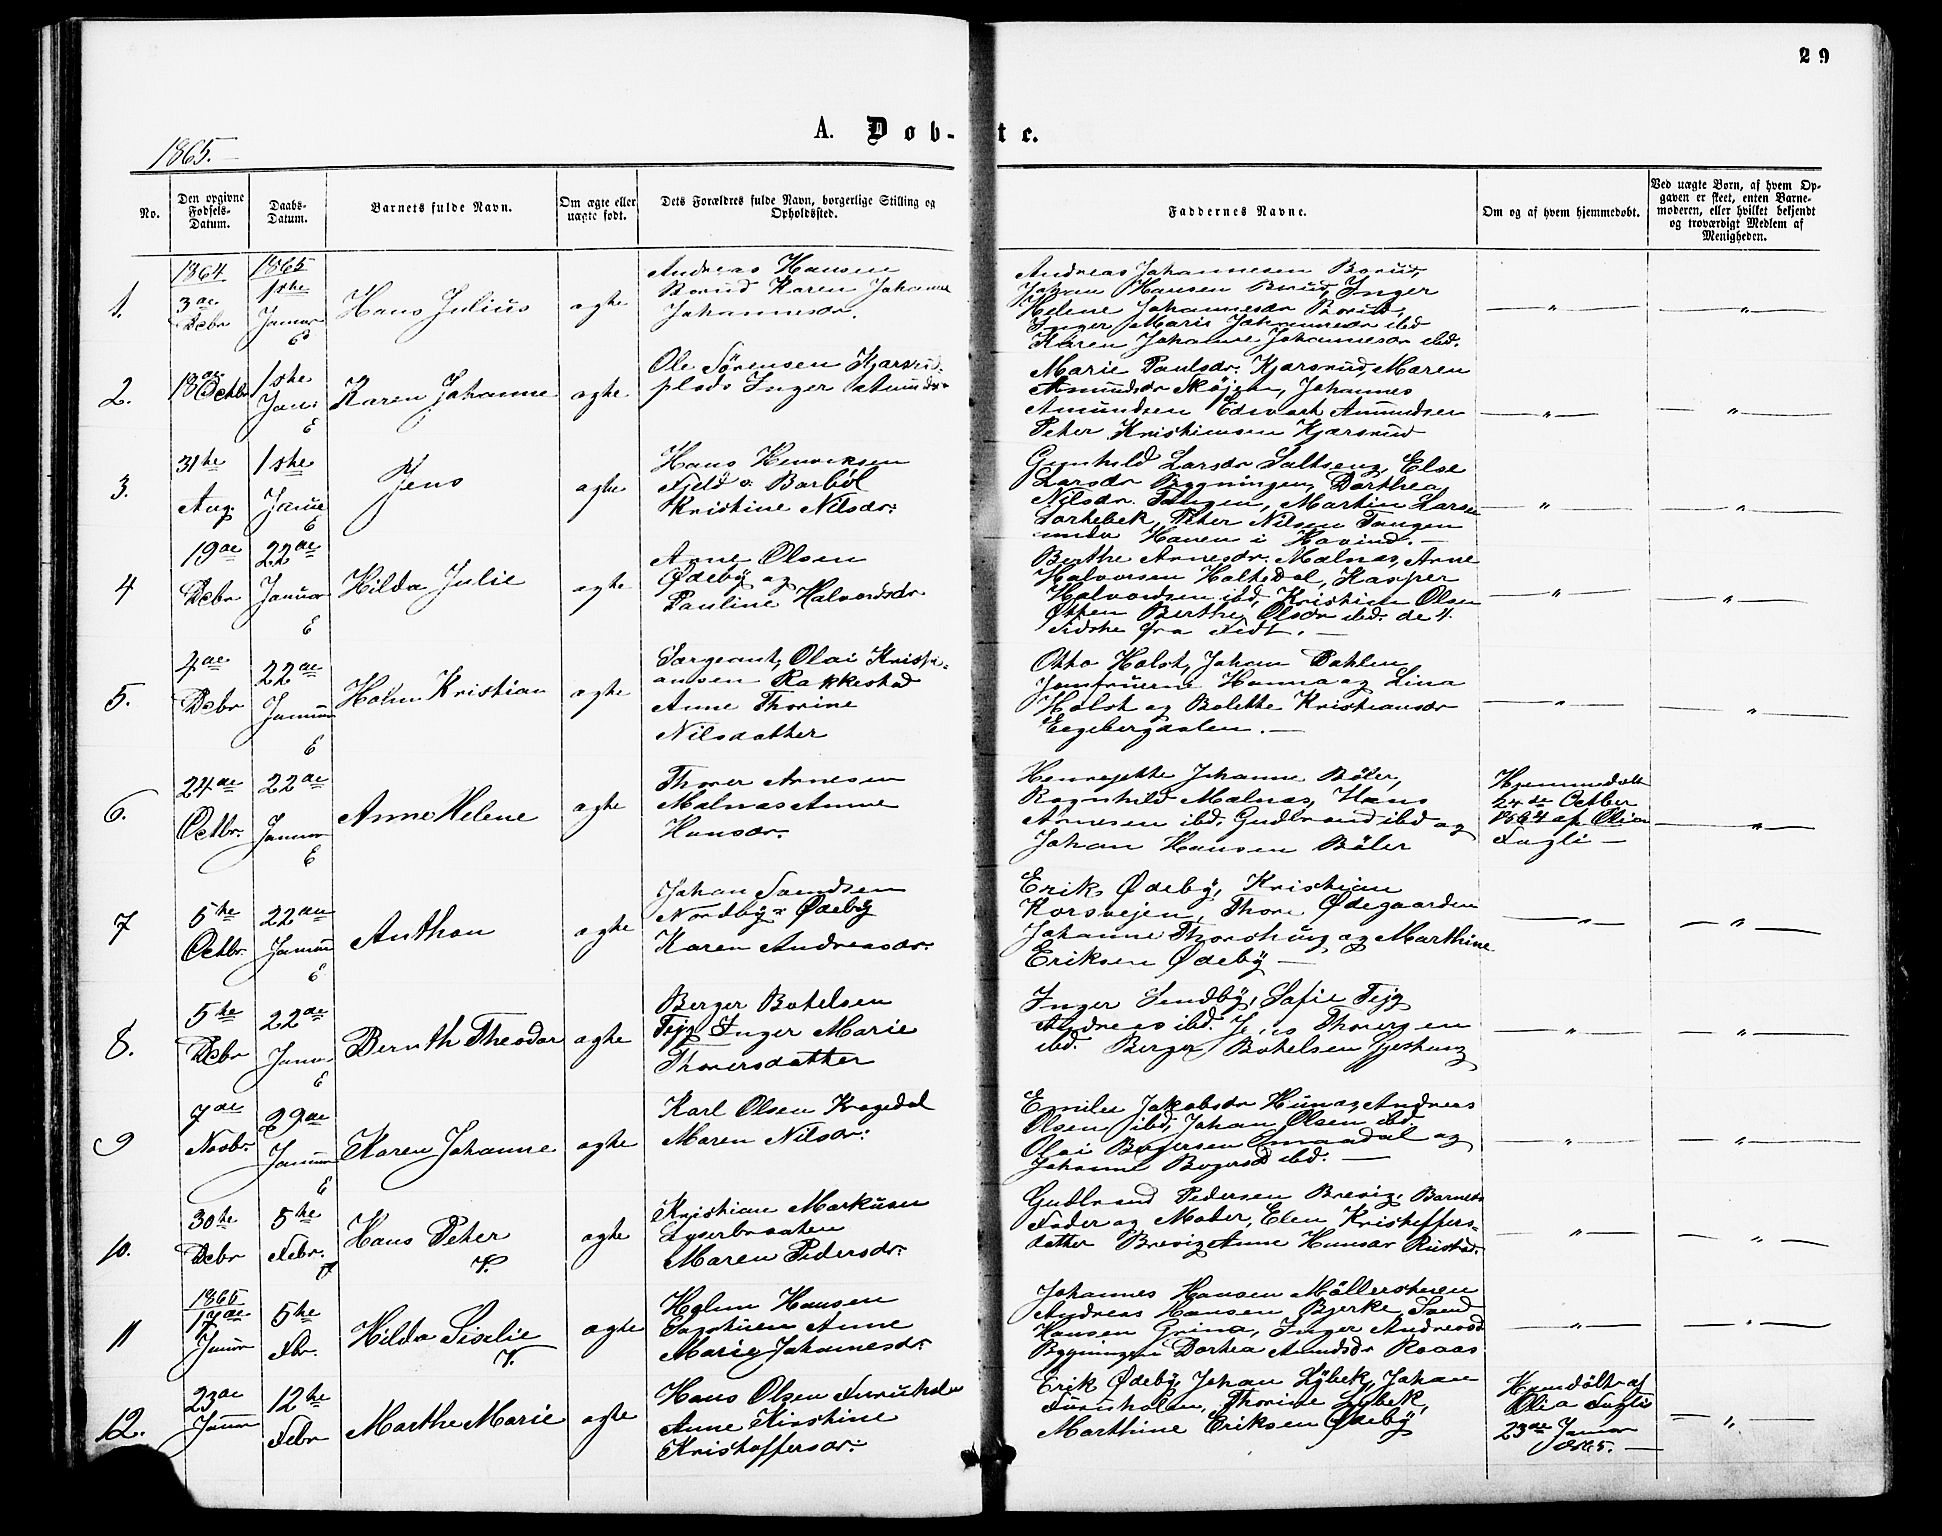 29
A. Døb-te.
1865.
No.
Den opgivne Fødsels-Datum.
Daabs-Datum.
Barnets fulde Navn.
Om ægte eller uægte født.
Dets Forældres fulde Navn, borgerlige Stilling og Opholdssted.
Faddernes Navne.
Om og af hvem hjemmedøbt.
Ved uægte Børn, af hvem Opgaven er skeet, enten Barnemoderen, eller hvilket bekjendt og troværdigt Medlem af Menigheden.
1.
1864
3de
Debr
1865
1ste
Januar
Hans Julius
ægte
Andreas Hansen
Borud Karen Johanne
Johannesdr.
Andreas Johannesen Borud,
Johan Hansen Borud, Inger
Helene Johannesdr Borud,
Inger Marie Johannesdr ibd
Karen Johanne Johannesdr ibd.
2.
18de Octbr
1ste
Jan.
E
Karen Johanne
ægte
Ole Sørensen Kjærsrud
plads Inger Amundsdr
Marie Paulsdr. Kjærsrud, Maren
Amundsdr Skøjen, Johannes
Amundsen Edvart Amundsen
Peter Kristiansen Kjærsrud
3.
31te
Aug.
1ste
Janua
E
Jens
ægte
Hans Henriksen
Kristine Nilsdr.
Gunhild Larsdr
Else
Larsdr Bygningen, Dorthea
Nilsdr. Tangen, Martin Larsen
Peter Nilsen Tangen
4
19de
Debr
22de
Januar
E
Hilda Julie
ægte
Arne Olsen
Ødeby og
Pauline Halvordsdr
Berthe Arnesdr. Malnæs, Arne
Halvorsen Holtedal, Kasper
Halvordsen ibd, Kristian Olsen
Berthe Olsdr ibd. de 4
sidste fra
5.
4de
Debr
22de
Januar
E
Holm Kristian
ægte
Sergeant, Olai Kristi-
ansen Rakkestad
Anne Thorine
Nilsdatter
Otto Holst, Johan Dahlen
Jomfruerne Hanna og Lina
Holst og Bolette Kristiansdr
Eegebergdalen.
6.
24de
Octbr.
22de
Januar
E
Anne Helene
ægte
Thorer Arnesen
Malnæs Anne
Hansdr.
Johanne Bøler,
Ragnhild Malnæs, Hans
Arnesen ibd. Gudbrand ibd og
Johan Hansen Bøler
Hjemmedøbt
24de Octber
1864 af Olia
Fagli
7
5te
Octbr
22de
Januar
E
Anthon
ægte
Johan
Nordby
Ødeby
Karen Andreasdr.
Erik Ødeby, Kristian
Korsvejen, Thore Ødegaarden
Johanne
og Marthine
Eriksen Ødeby
8.
5te
Debr
22de
Janu.
E
Bernth Theodor
ægte
Berger Botelsen
Inger Marie
Thorersdatter
Inger
Sofie
Andreas ibd.
ibd. Berger Botelsen
9
7de
Novbr.
29de
Januar
E
Karen Johanne
ægte
Karl Olsen Kragedal
Maren Nilsdr.
Emilie Jakobsdr
Andreas
Olsen ibd, Johan Olsen ibd.
Olai
Smaadal og
Johanne
ibd.
10.
30te
Debr
5te
Febr.
Hans Peter
V.
ægte
Kristian Markusen
Lyserbraaten
Maren Pedersdr.
Gudbrand Pedersen Brevig, Barnets
Fader og Moder, Elen Kristoffers-
datter Brevig Anne Hansdr Rustad.
11
1865
Januar
5te
Fbr.
Hilda Siselie
V.
ægte
Holm Hansen
Anne
Marie Johannesdr.
Johannes Hansen Møllerstuen
Andreas Hansen Bjerke
Hansen Grina, Inger Andreasd
Bygningen Dorthea Amundsdr Raaas
12.
23de
Januar
12te
Febr
Marthe Marie
ægte
Hans Olsen Furuholm
Anne Kirstine
Kristoffersdr.
Erik Ødeby, Johan Lybek, Johan
Furuholm, Thorine Lybek,
Marthine Eriksen Ødeby
Hjemdøbt af
Olia Fagli
23de Januar
1865.